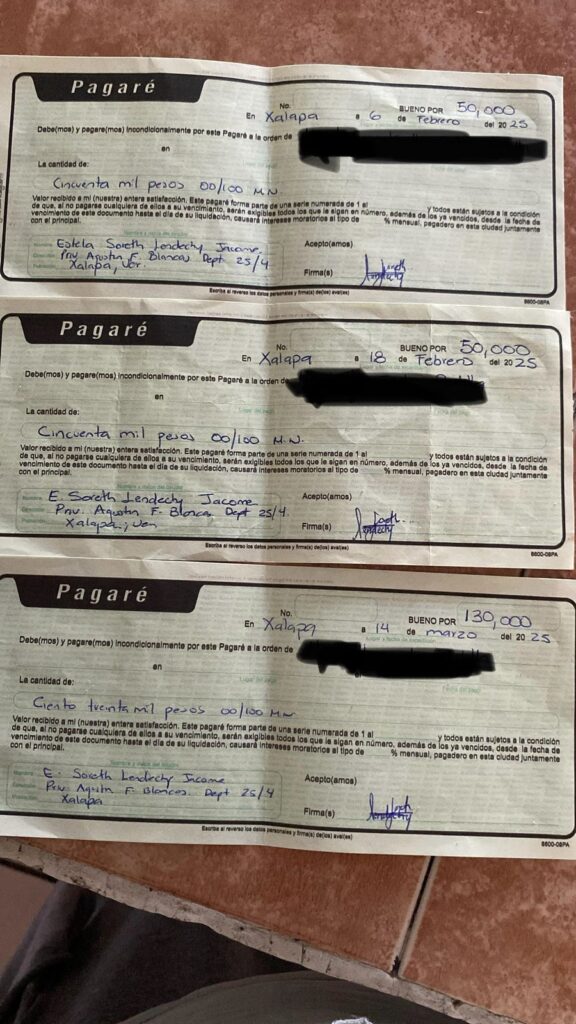 Pagaré
No.
BUENO POR 50,000
En Xalapa a 6 de Febrero del 2025
Debe(mos) y pagaré(mos) incondicionalmente por este Pagaré a la orden de
en
La cantidad de:
Cincuenta mil pesos 00/100 M.N.
Valor recibido a mi (nuestra) entera satisfacción. Este pagaré forma parte de una serie numerada de 1 al y todos están sujetos a la condición
de que, al no pagarse cualquiera de ellos a su vencimiento, serán exigibles todos los que le sigan en número, además de los ya vencidos, desde la fecha de
vencimiento de este documento hasta el día de su liquidación, causará intereses moratorios al tipo de % mensual, pagadero en esta ciudad juntamente
con el principal.
Nombre y datos del deudor
Nombre Estela Soreth Lendechy Jacome.
Dirección Priv. Agustin F. Blancas Dept 25/4
Población Xalapa, Ver.
Acepto(amos)
Firma(s)
Escriba al reverso los datos personales y firma(s) de(los) aval(es)
8600-08PA
Pagaré
No.
BUENO POR 50,000
En Xalapa a 18 de Febrero del 2025
Debe(mos) y pagaré(mos) incondicionalmente por este Pagaré a la orden de
en
La cantidad de:
Cincuenta mil pesos 00/100 M.N.
Valor recibido a mi (nuestra) entera satisfacción. Este pagaré forma parte de una serie numerada de 1 al y todos están sujetos a la condición
de que, al no pagarse cualquiera de ellos a su vencimiento, serán exigibles todos los que le sigan en número, además de los ya vencidos, desde la fecha de
vencimiento de este documento hasta el día de su liquidación, causará intereses moratorios al tipo de % mensual, pagadero en esta ciudad juntamente
con el principal.
Nombre y datos del deudor
Nombre E. Soreth Lendechy Jacome
Dirección Priv. Agustin F. Blancas Dept 25/4.
Población Xalapa, Ver.
Acepto(amos)
Firma(s)
Escriba al reverso los datos personales y firma(s) de(los) aval(es)
8600-08PA
Pagaré
No.
BUENO POR 130,000
En Xalapa a 14 de marzo del 2025
Debe(mos) y pagaré(mos) incondicionalmente por este Pagaré a la orden de
en
La cantidad de:
Ciento treinta mil pesos 00/100 M.N
Valor recibido a mi (nuestra) entera satisfacción. Este pagaré forma parte de una serie numerada de 1 al y todos están sujetos a la condición
de que, al no pagarse cualquiera de ellos a su vencimiento, serán exigibles todos los que le sigan en número, además de los ya vencidos, desde la fecha de
vencimiento de este documento hasta el día de su liquidación, causará intereses moratorios al tipo de % mensual, pagadero en esta ciudad juntamente
con el principal.
Nombre y datos del deudor
Nombre E. Soreth Lendechy Jacome
Dirección Priv. Agustin F. Blancas Dept 25/4
Población Xalapa
Acepto(amos)
Firma(s)
Escriba al reverso los datos personales y firma(s) de(los) aval(es)
8600-08PA